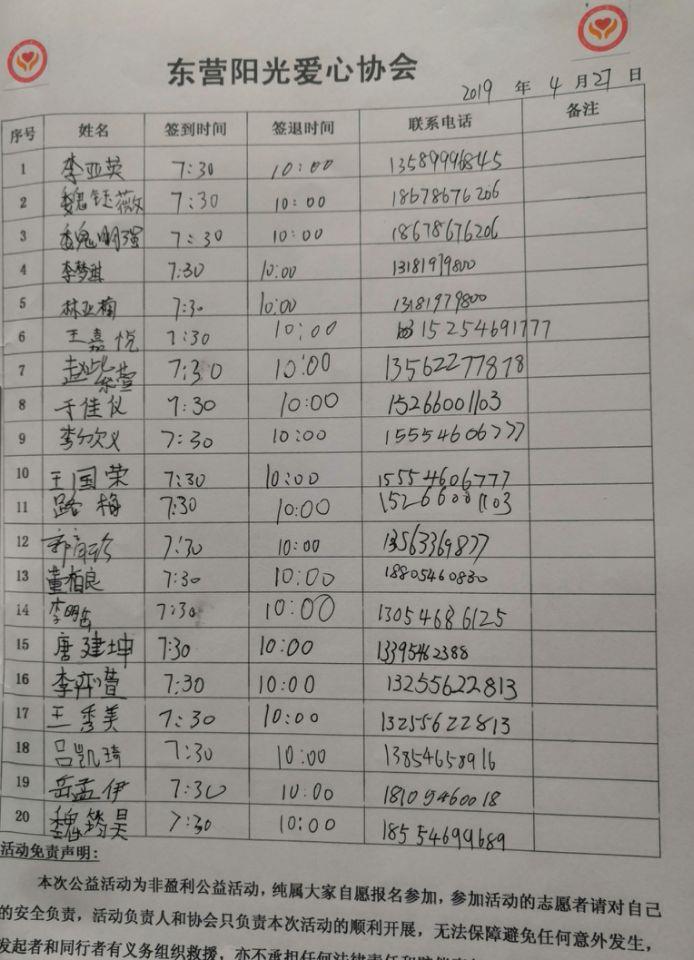 东营阳光爱心协会
2019 年 4 月 27 日
序号 姓名 签到时间 签退时间 联系电话 备注
1 李亚英 7:30 10:00 13589996845
2 魏钰薇 7:30 10:00 18678676206
3 魏明强 7:30 10:00 18678676206
4 李梦琪 7:30 10:00 13181979800
5 林亚楠 7:30 10:00 13181979800
6 王嘉悦 7:30 10:00 15254691777
7 赵紫萱 7:30 10:00 13562277878
8 于佳仪 7:30 10:00 15266001103
9 7:30 10:00 15554606777
10 王国荣 7:30 10:00 15554606777
11 路梅 7:30 10:00 15266001103
12 7:30 10:00 13563369877
13 董柏良 7:30 10:00 18805460830
14 李明 7:30 10:00 13054686125
15 唐建坤 7:30 10:00 13395462388
16 李 萱 7:30 10:00 13255622813
17 王秀美 7:30 10:00 13255622813
18 吕凯琦 7:30 10:00 13854658916
19 岳孟伊 7:30 10:00 18109460018
20 魏筠昊 7:30 10:00 18554699689
活动免责声明:
本次公益活动为非盈利公益活动，纯属大家自愿报名参加，参加活动的志愿者请对自己
的安全负责，活动负责人和协会只负责本次活动的顺利开展，无法保障避免任何意外发生，
发起者和同行者有义务组织救援，亦不承担任何法律责任和赔偿